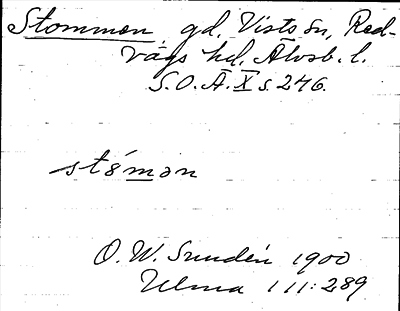 Stommen, gd, Vists sn, Red-
vägs hd, Älvsb. l.
S.O.Ä. X s 246.
stómən
O. W. Sundén 1900
Ulma 111:289